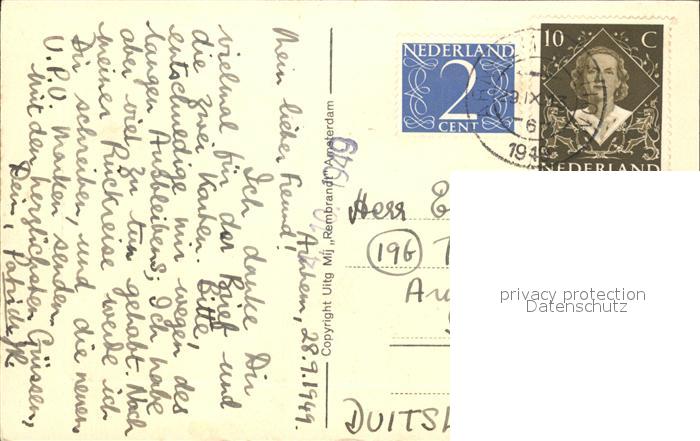 Arnhem, 28.9.1949.
Mein lieber Freund!
Ich danke Dir
vielmal für den Brief und
die zwei Karten. Bitte,
entschuldige mir wegen des
langen Ausbleibens; Ich habe
aber viel zu tun gehabt. Nach
meiner Rückreise werde ich
Dir schreiben, und die neuen
U.P.U. Marken senden.
Mit den herzlichsten Grüssen,
Dein,
Copyright Uitg Mij „Rembrandt" Amsterdam
NEDERLAND
2
CENT
10 C
NEDERLAND
IX
1949
Herr
(196)
DUITSL
privacy protection
Datenschutz